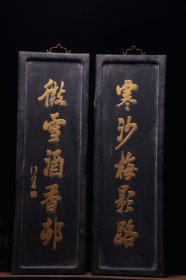 寒沙梅影路
微雪酒香邨